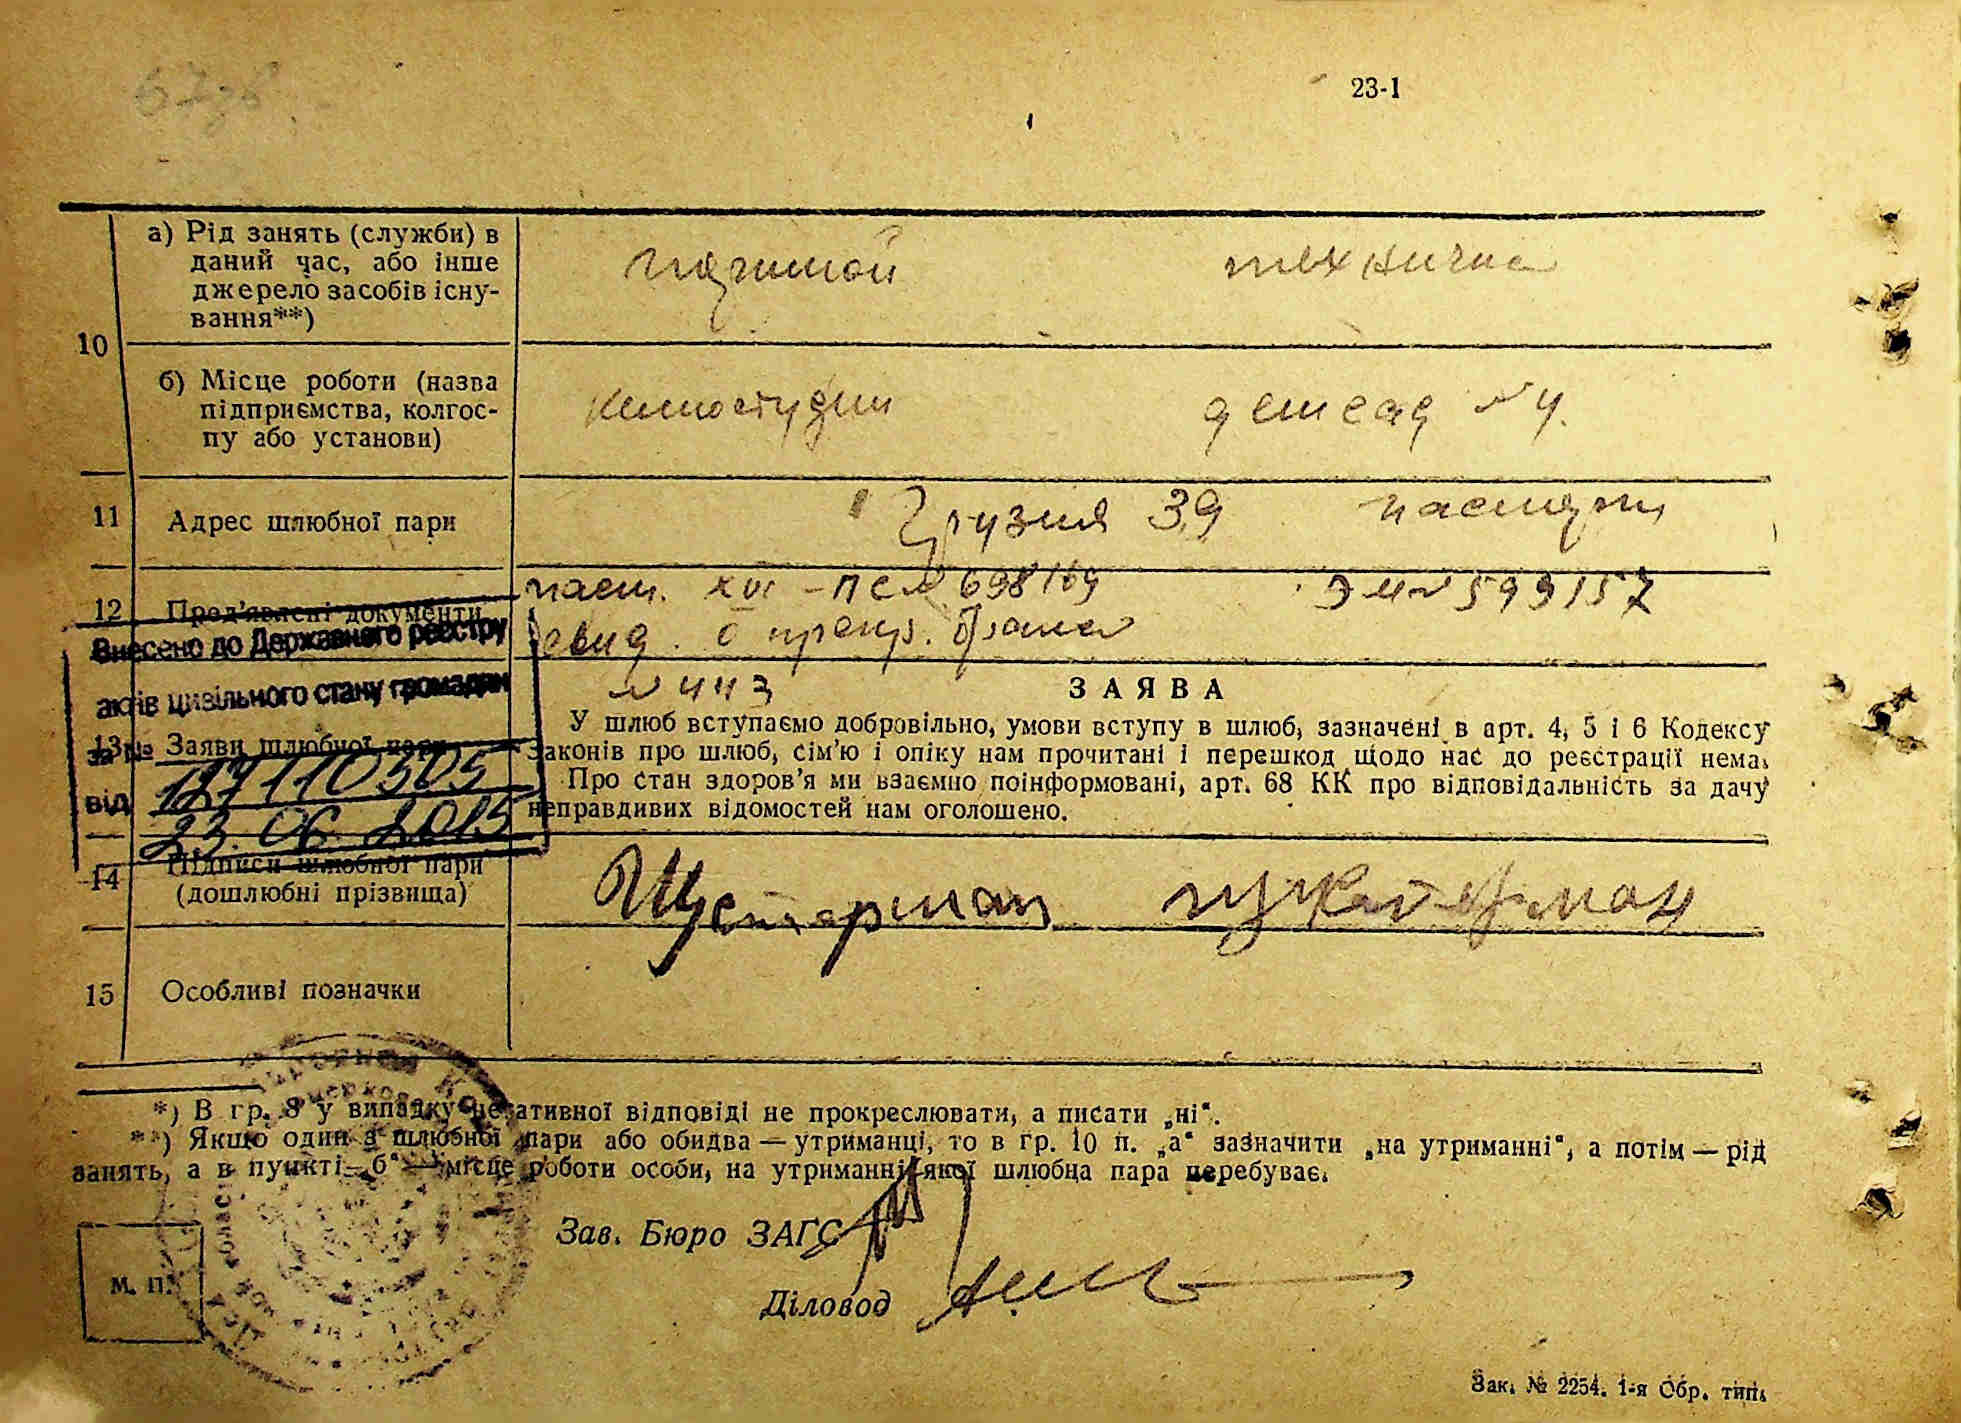 23-1
а) Рід занять (служби) в
даний час, або інше
джерело засобів існу-
вання**)
технична
10
б) Місце роботи (назва
підприємства, колгос-
пу або установи)
киностудии
детсад № 4.
11
Адрес шлюбної пари
Грузия 39
паспорт
12
Пред'явлені документи
пасп. XVI – ПС № 698169
ЭМ № 599157
свид. о прекр. брака
№ 443
Внесено до Державного реєстру
актів цивільного стану громадян
за № 127110505
від 23.06.2015
13
Заяви шлюбної пари
ЗАЯВА
У шлюб вступаємо добровільно, умови вступу в шлюб, зазначені в арт. 4, 5 і 6 Кодексу
законів про шлюб, сім'ю і опіку нам прочитані і перешкод щодо нас до реєстрації нема.
Про стан здоров'я ми взаємно поінформовані, арт. 68 КК про відповідальність за дачу
неправдивих відомостей нам оголошено.
14
Підписи шлюбної пари
(дошлюбні прізвища)
Шустерман
15
Особливі позначки
*) В гр. 8 у випадку негативної відповіді не прокреслювати, а писати „ні“.
**) Якщо один з шлюбної пари або обидва — утриманці, то в гр. 10 п. „а“ зазначити „на утриманні“, а потім — рід
занять, а в пункті „б“ — місце роботи особи, на утриманні якої шлюбна пара перебуває.
Зав. Бюро ЗАГС
М. П.
Діловод
Зак. № 2254. 1-я Обр. тип.